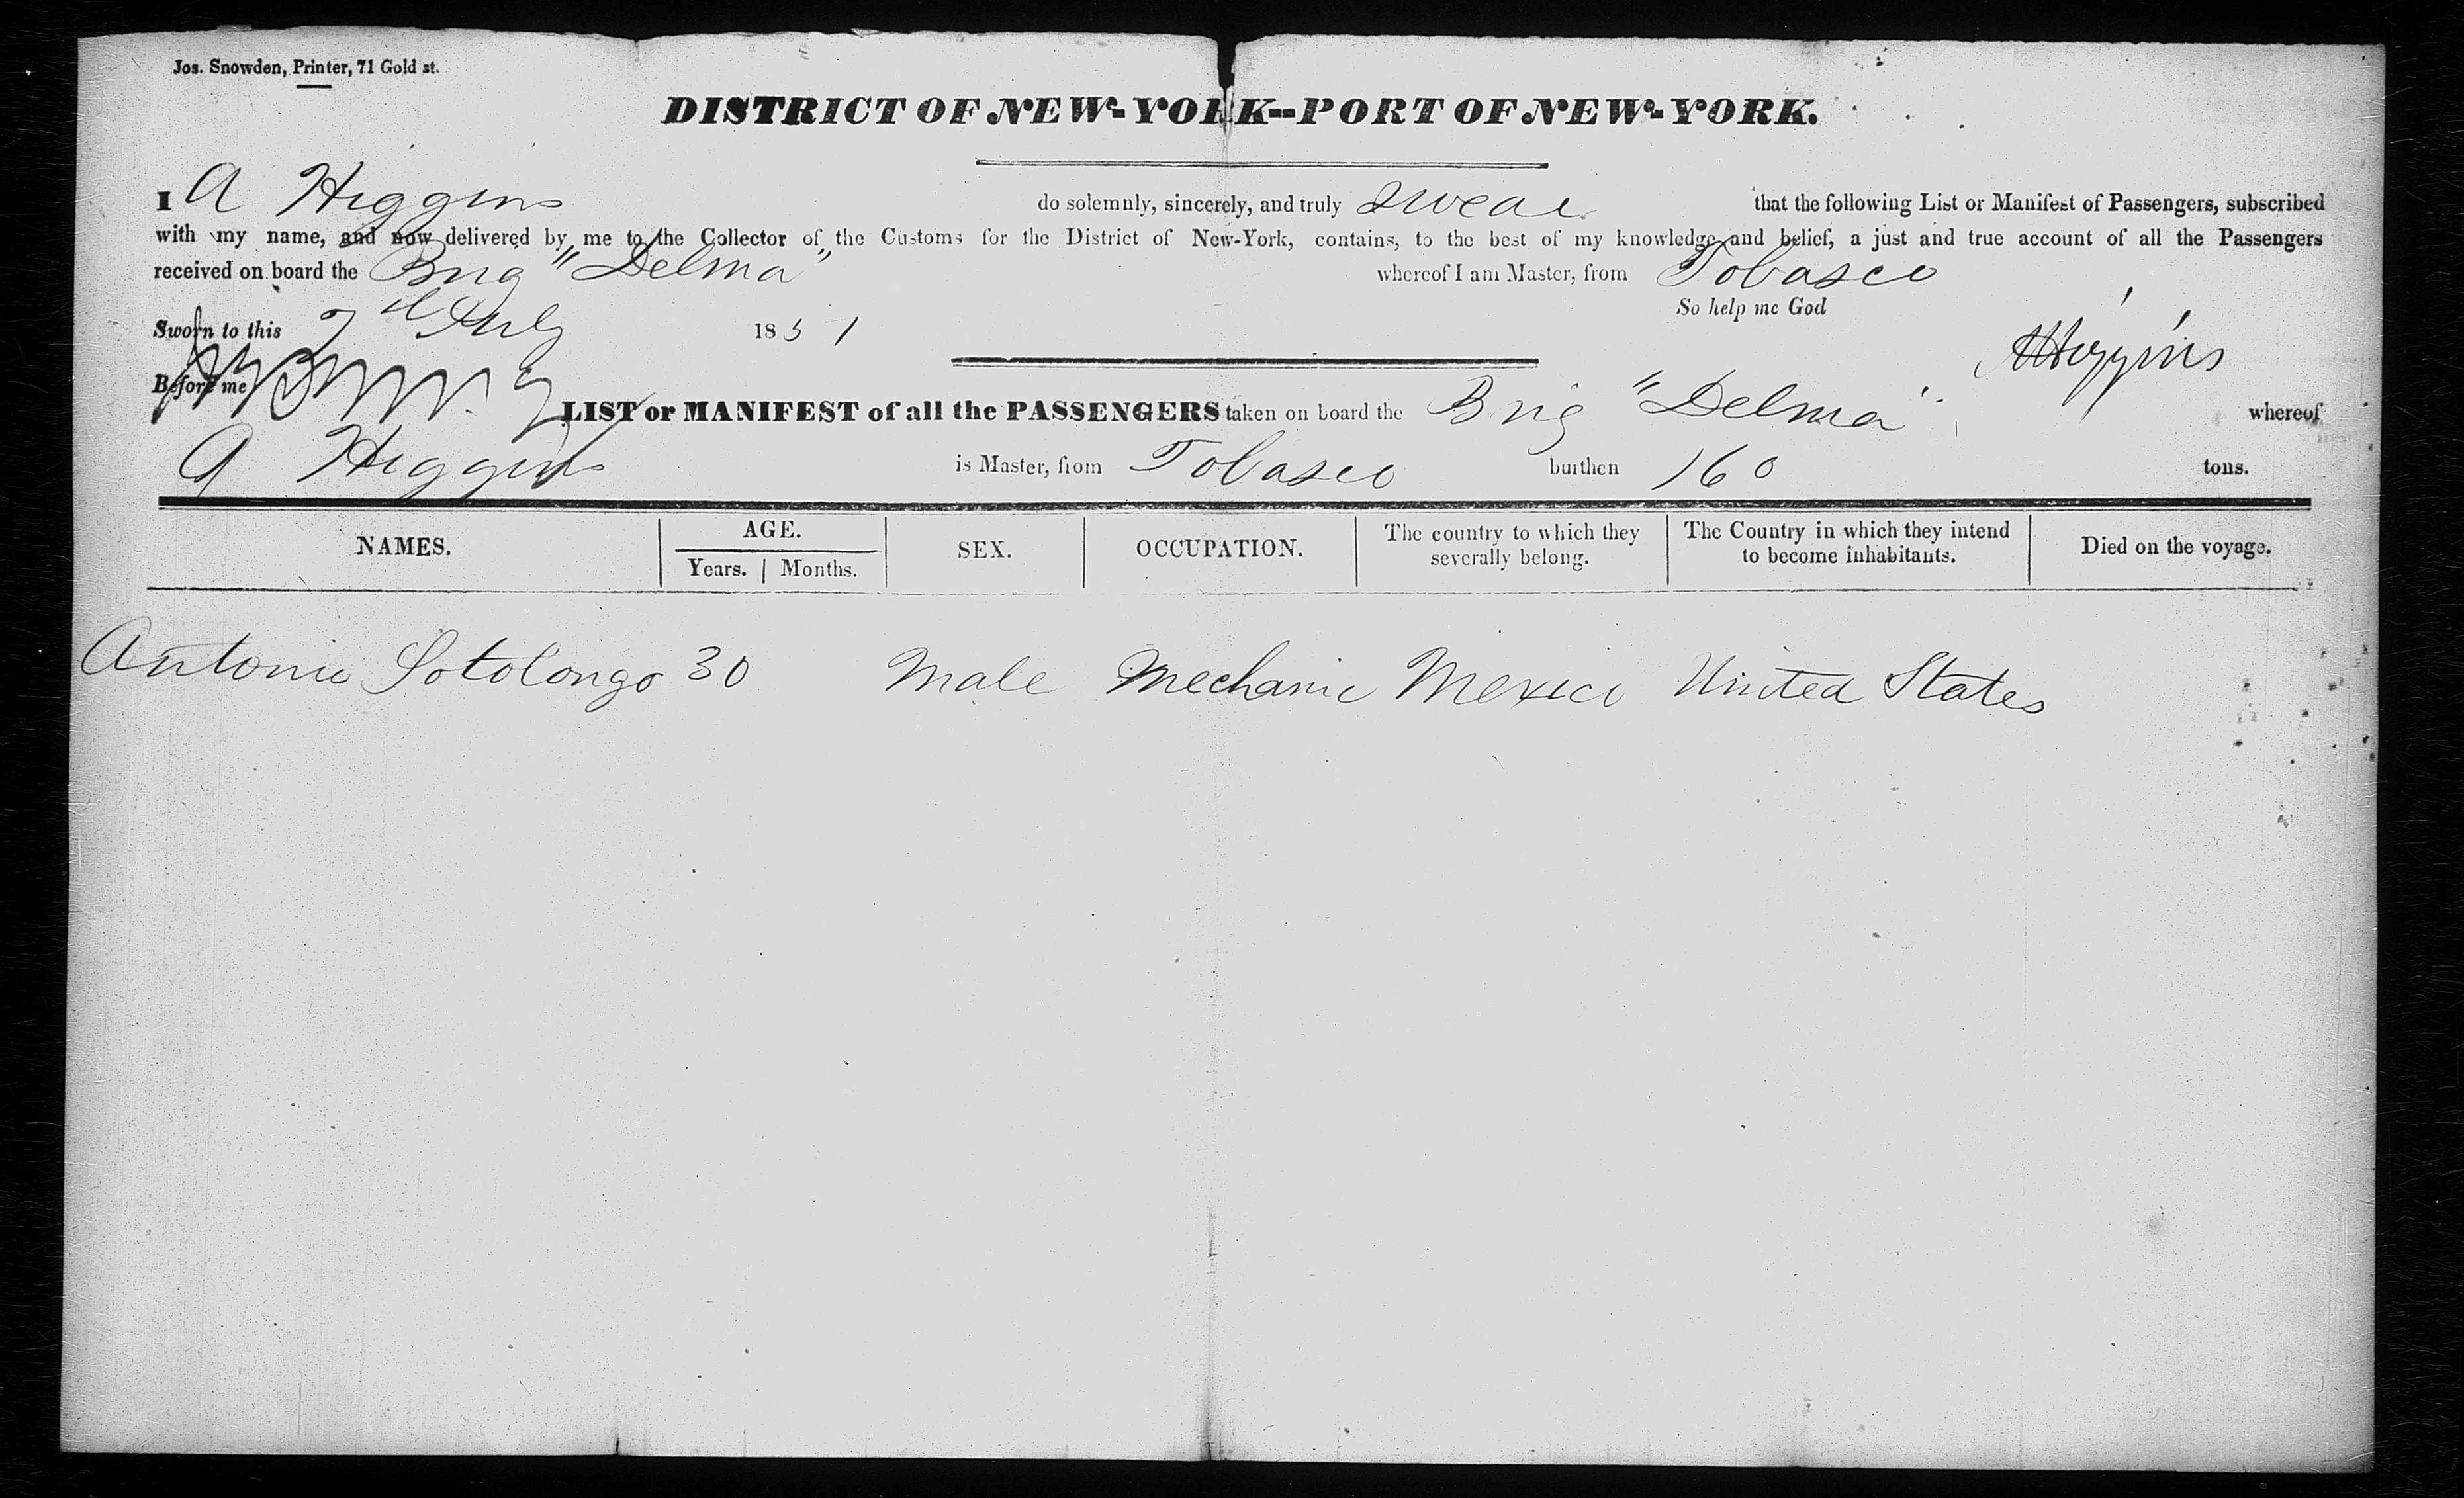 Jos. Snowden, Printer, 71 Gold st.
DISTRICT OF NEW-YORK--PORT OF NEW-YORK.
I A Higgins do solemnly, sincerely, and truly swear that the following List or Manifest of Passengers, subscribed
with my name, and now delivered by me to the Collector of the Customs for the District of New-York, contains, to the best of my knowledge and belief, a just and true account of all the Passengers
received on board the Brig "Delma" whereof I am Master, from Tobasco
So help me God
Sworn to this July 1851
AHiggins
Before me
LIST or MANIFEST of all the PASSENGERS taken on board the Brig "Delma" whereof
A Higgins is Master, from Tobasco burthen 160 tons.
NAMES. AGE. Years. Months. SEX. OCCUPATION. The country to which they severally belong. The Country in which they intend to become inhabitants. Died on the voyage.
Antonio Sotolongo 30 Male Mechanic Mexico United States